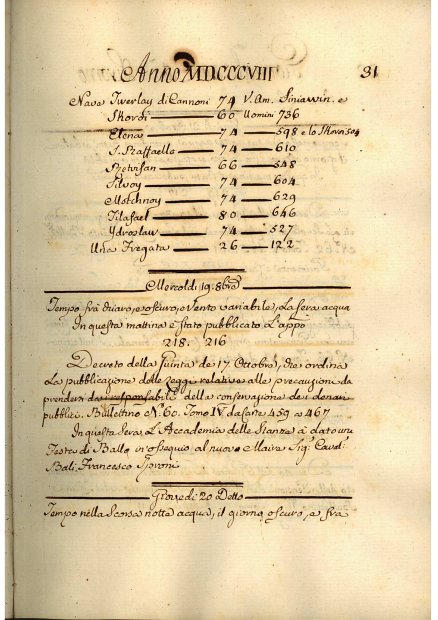 Anno MDCCCVIII 31
Nave Twerlay di Cannoni 74 V. Am. Siniavvin. e
Skordi 60 Uomini 736
Elena 74 598 e lo Skorvi 504
S. Raffaello 74 610
Szetvisan 66 548
Silvoy 74 604
Motchnoy 74 629
Filafael 80 646
Ydroslaw 74 527
Una Fregata 26 122
Mercoldì 19. 8bre
Tempo frà chiaro, e oscuro, e Vento variabile, La sera acqua
In questa mattina è stato pubblicato L'appo
218. 216
Decreto della Giunta de 17 Ottobre, che ordina
La pubblicazione delle Leggi relative alle precauzioni da
prendersi dai responsabili della conservazione dei denari
pubblici. Bullettino N.º 60. Tomo IV. da Carte 459 a 467
In questa sera, L'Accademia delle Stanze à dato una
Festa di Ballo in ossequio al nuovo Maire Sig.r Caval.r
Balì Francesco Sproni
Giovedì 20 Detto
Tempo nella Scorsa notte acqua, il giorno oscuro, e frà